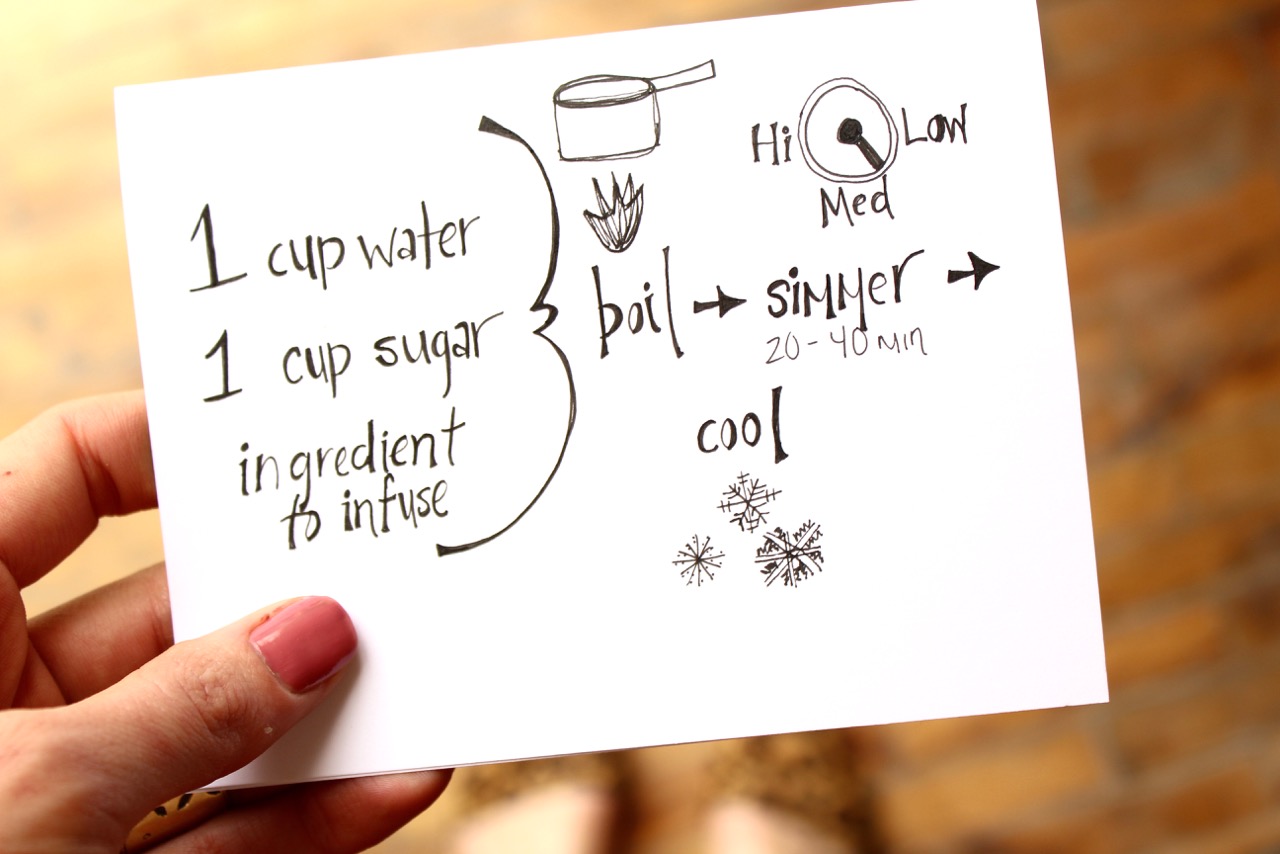 1 cup water
1 cup sugar
ingredient
to infuse
Hi
Low
Med
boil → simmer →
20-40 min
cool